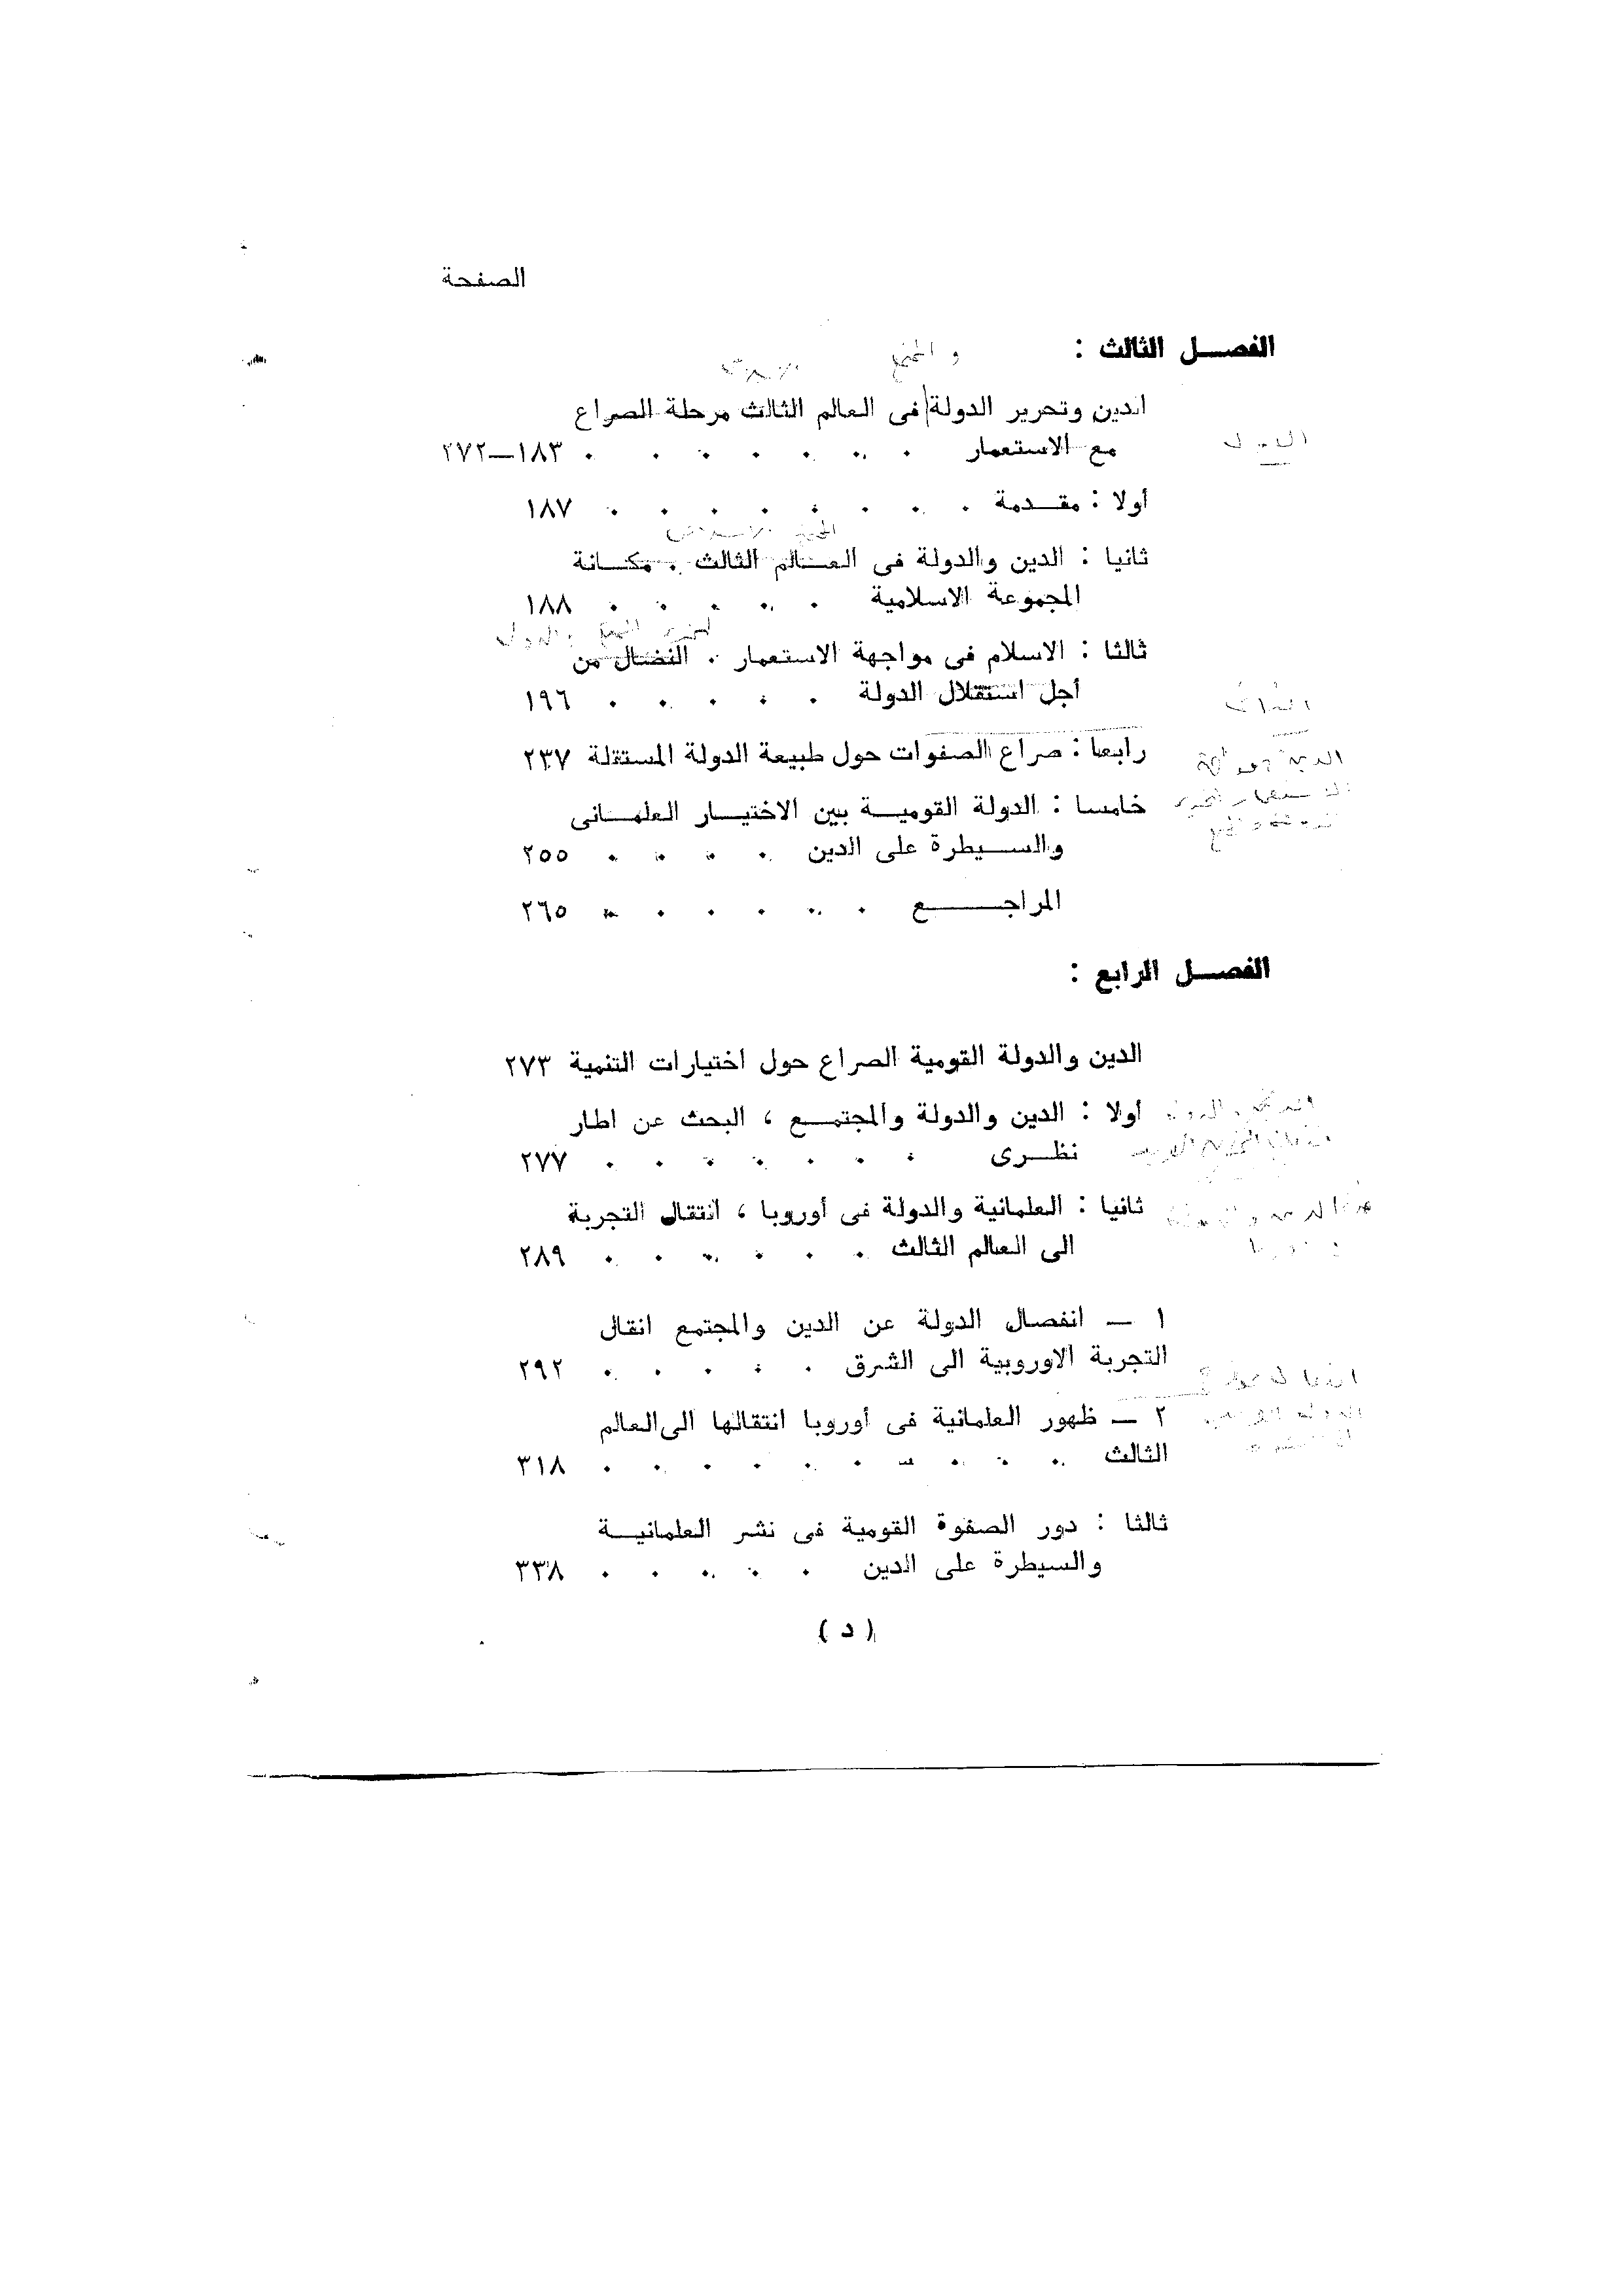 الصفحة
الفصـــل الثالث :
و المجتمع
الدين وتحرير الدولة فى العالم الثالث مرحلة الصراع
مع الاستعمار . . . . . . . ١٨٣—٢٧٢
أولا : مقـدمة . . . . . . . . ١٨٧
ثانيا : الدين والدولة فى العـــالم الثالث . مكـــانة
المجموعة الاسلامية . . . . . ١٨٨
ثالثا : الاسلام فى مواجهة الاستعمار . النضال من
أجل استقلال الدولة . . . . . ١٩٦
رابعا : صراع الصفوات حول طبيعة الدولة المستقلة ٢٣٧
خامسا : الدولة القوميـــة بين الاختيـــار العلمـــانى
والســـيطرة على الدين . . . . ٢٥٥
المراجـــــع . . . . . . ٢٦٥
الفصـــل الرابع :
الدين والدولة القومية الصراع حول اختيارات التنمية ٢٧٣
أولا : الدين والدولة والمجتمـــع ، البحث عن اطار
نظـــرى . . . . . . . ٢٧٧
ثانيا : العلمانية والدولة فى أوروبا ، انتقال التجربة
الى العالم الثالث . . . . . . ٢٨٩
١ — انفصال الدولة عن الدين والمجتمع انقال
التجربة الاوروبية الى الشرق . . . . . ٢٩٢
٢ — ظهور العلمانية فى أوروبا انتقالها الى العالم
الثالث . . . . . . . . . . ٣١٨
ثالثا : دور الصفوة القومية فى نشر العلمانيـــة
والسيطرة على الدين . . . . . ٣٣٨
( د )